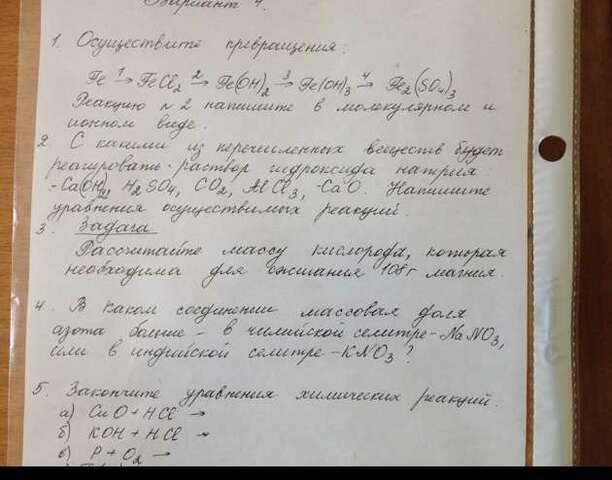 Вариант 4.
1. Осуществите превращения:
Fe 1→ FeCl2 2→ Fe(OH)2 3→ Fe(OH)3 4→ Fe2(SO4)3
Реакцию № 2 напишите в молекулярном и
ионном виде.
2 С какими из перечисленных веществ будет
реагировать раствор гидроксида натрия:
-Ca(OH)2, H2SO4, CO2, AlCl3, -CaO. Напишите
уравнения осуществимых реакций.
3. Задача
Рассчитайте массу кислорода, которая
необходима для сжигания 108 г магния.
4. В каком соединении массовая доля
азота больше - в чилийской селитре - NaNO3,
или в индийской селитре - KNO3?
5. Закончите уравнения химических реакций.
а) CuO + HCl →
б) KOH + HCl →
в) P + O2 →